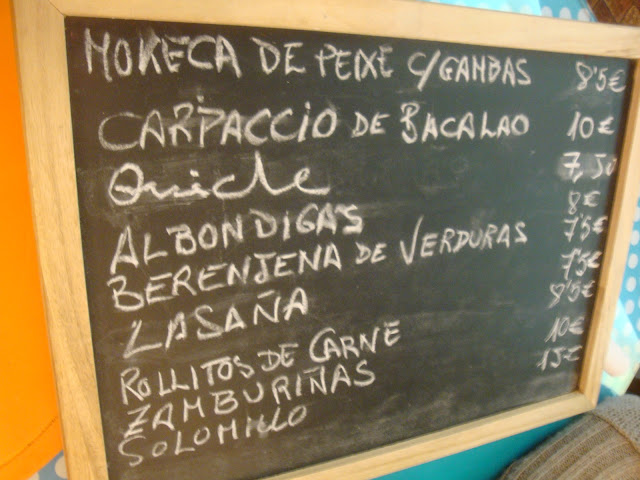 MOKECA DE PEIXE C/GAMBAS 8'5€
CARPACCIO DE BACALAO 10€
Quiche 7,50
ALBONDIGAS 8€
BERENJENA DE VERDURAS 7'5€
LASAÑA 7'5€
ROLLITOS DE CARNE 8'5€
ZAMBURIÑAS 10€
SOLOMILLO 15€